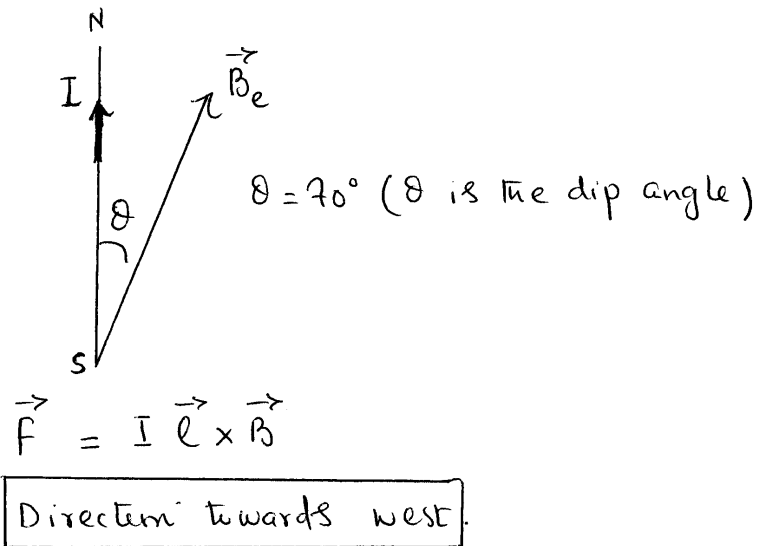 N
I
B⃗e
θ = 70° (θ is the dip angle)
θ
S
F⃗ = I l⃗ × B⃗
Direction towards west.